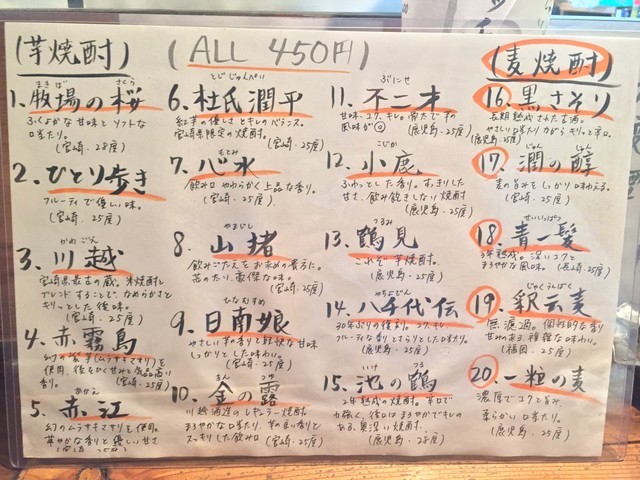 (芋焼酎)
(ALL 450円)
まきば さくら
1. 牧場の桜
ふくよかな甘味とソフトな
口当たり。
(宮崎・28度)
2. ひとり歩き
フルーティで優しい味。
(宮崎・25度)
かわごえ
3. 川越
宮崎県最古の蔵。米焼酎とし
ブレンドすることで、なめらかさと
キリっとした後味。
(宮崎・25度)
4. 赤霧島
幻の紫芋(ムラサキマサリ)を
使用、後をひく甘みと気品高い
香り。 (宮崎・25度)
あかえ
5. 赤江
幻のムラサキマサリを使用。
華やかな香りと優しい甘さ
(宮崎・25度)
とじじゅんぺい
6. 杜氏潤平
紅芋の優しさとキレのバランス。
宮崎県限定の焼酎。
(宮崎・25度)
もとみ
7. 心水
飲み口やわらかく上品な香り。
(宮崎・25度)
やまじし
8. 山猪
飲みごたえをお求めの貴方に。
苦のたり、豪傑な味。
(宮崎・25度)
ひなむすめ
9. 日南娘
やさしい芋の香りと軽快な甘味
しっかりとした味わい。
(宮崎・25度)
きん つゆ
10. 金の露
川越酒造のレギュラー焼酎。
まろやかな口当たり、芋の良い香りと
スッキリした飲み口 (宮崎・25度)
ぶにせ
11. 不二才
甘味、コク、キレ。常温で芋の
風味が◎
(鹿児島・25度)
こじか
12. 小鹿
ふわっとした香り。すっきりした
甘さ、飲み飽きしない焼酎
(鹿児島・25度)
つるみ
13. 鶴見
これぞ芋焼酎。
(鹿児島・25度)
やちよでん
14. 八千代伝
30年ぶりの復刻。コク、キレ
フルーティな香りとさらりとした口当たり。
(鹿児島・25度)
いけ つる
15. 池の鶴
2年熟成の焼酎。辛口で
力強く、後口はまろやかでキレの
ある、奥深い焼酎。
(鹿児島・25度)
(麦焼酎)
16. 黒さそり
長期熟成された古酒。
やさしい口当たりながらキリっと辛口。
(宮崎・25度)
じゅん しゅん
17. 潤の醇
麦の旨みをしっかり味わえる。
(宮崎・25度)
せいいっぱつ
18. 青一髪
3年熟成。深いコクと
まろやかな風味。 (長崎・25度)
じゃくうんばく
19. 釈云麦
無濾過。個性的な香り
甘みのある複雑な味わい。
(福岡・25度)
20. 一粒の麦
濃厚でコクと旨み
柔らかい口当たり。
(鹿児島・25度)